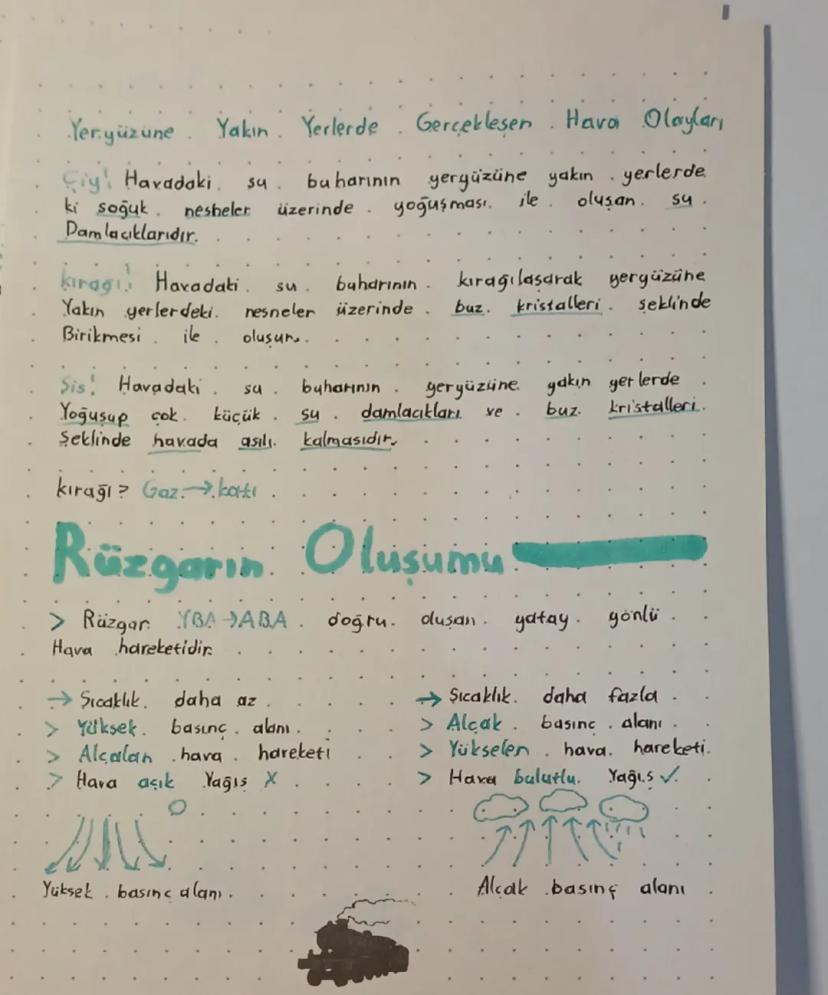 Yeryüzüne Yakın Yerlerde Gerçekleşen Hava Olayları
Çiy! Havadaki su buharının yeryüzüne yakın yerlerde
ki soğuk nesneler üzerinde yoğuşması ile oluşan su
Damlacıklarıdır.
kırağı! Havadaki su buharının kırağılaşarak yeryüzüne
Yakın yerlerdeki nesneler üzerinde buz kristalleri şeklinde
Birikmesi ile oluşur.
Sis! Havadaki su buharının yeryüzüne yakın yerlerde
Yoğuşup çok küçük su damlacıkları ve buz kristalleri
Şeklinde havada asılı kalmasıdır.
kırağı? Gaz → katı
Rüzgarın Oluşumu
> Rüzgar YBA → ABA doğru oluşan yatay yönlü
Hava hareketidir.
→ Sıcaklık daha az
> Yüksek basınç alanı
> Alçalan hava hareketi
> Hava açık Yağış X
Yüksek basınç alanı
→ Sıcaklık daha fazla
> Alçak basınç alanı
> Yükselen hava hareketi
> Hava bulutlu Yağış ✓
Alçak basınç alanı